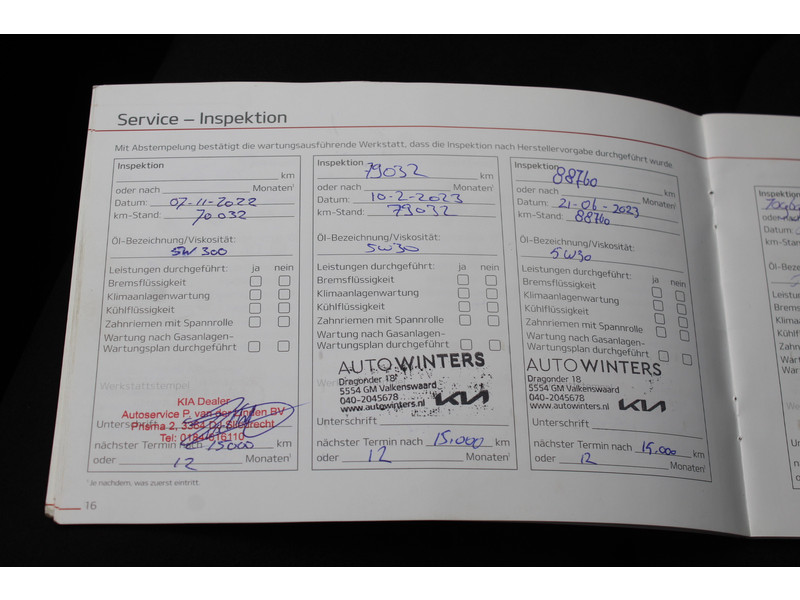 Service – Inspektion
Mit Abstempelung bestätigt die wartungsausführende Werkstatt, dass die Inspektion nach Herstellervorgabe durchgeführt wurde.
Inspektion
km
oder nach Monaten¹
Datum: 07-11-2022
km-Stand: 70.032
Öl-Bezeichnung/Viskosität:
5W 300
Leistungen durchgeführt: ja nein
Bremsflüssigkeit
Klimaanlagenwartung
Kühlflüssigkeit
Zahnriemen mit Spannrolle
Wartung nach Gasanlagen-
Wartungsplan durchgeführt
Werkstattstempel
KIA Dealer
Autoservice P. van der Linden BV
Prisma 2, 3364 DJ Sliedrecht
Tel: 0184-616110
Unterschrift
nächster Termin nach 15000 km
oder 12 Monaten¹
Inspektion 79032
km
oder nach Monaten¹
Datum: 10-2-2023
km-Stand: 79032
Öl-Bezeichnung/Viskosität:
5W30
Leistungen durchgeführt: ja nein
Bremsflüssigkeit
Klimaanlagenwartung
Kühlflüssigkeit
Zahnriemen mit Spannrolle
Wartung nach Gasanlagen-
Wartungsplan durchgeführt
AUTOWINTERS
Dragonder 18
5554 GM Valkenswaard
040-2045678
www.autowinters.nl KIA
Unterschrift
nächster Termin nach 15.000 km
oder 12 Monaten¹
Inspektion 88760
km
oder nach Monaten¹
Datum: 21-06-2023
km-Stand: 88760
Öl-Bezeichnung/Viskosität:
5W30
Leistungen durchgeführt: ja nein
Bremsflüssigkeit
Klimaanlagenwartung
Kühlflüssigkeit
Zahnriemen mit Spannrolle
Wartung nach Gasanlagen-
Wartungsplan durchgeführt
AUTOWINTERS
Dragonder 18
5554 GM Valkenswaard
040-2045678
www.autowinters.nl KIA
Unterschrift
nächster Termin nach 15.000 km
oder 12 Monaten¹
¹ Je nachdem, was zuerst eintritt.
16
Inspektion
oder nach
Datum:
km-Stand
Öl-Bezei
Leistung
Bremsfl
Klimaan
Kühlflüs
Zahnrie
Wartun
Wartun
Unters
nächs
oder